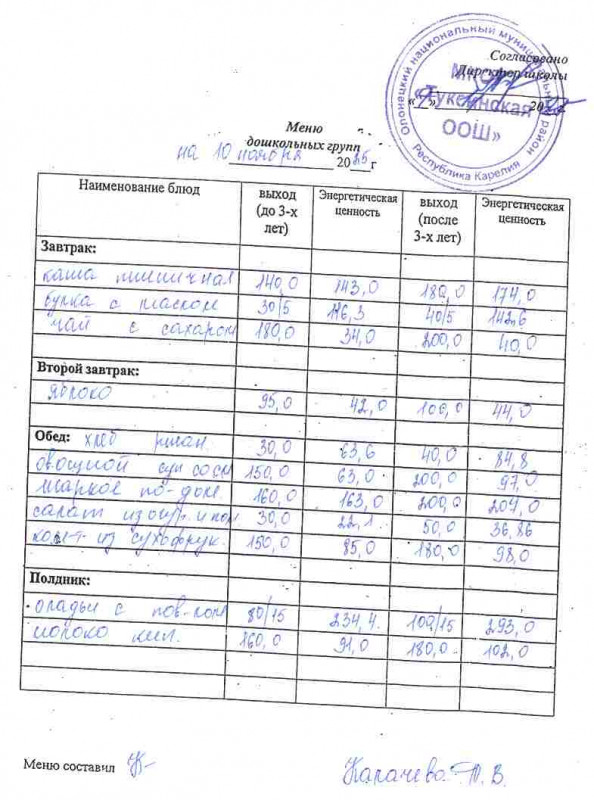 Согласовано
Директор школы
Олонецкий национальный муниципальный район
«Туксинская
ООШ»
Республика Карелия
Меню
дошкольных групп
на 10 ноября 2025 г
Наименование блюд выход (до 3-х лет) Энергетическая ценность выход (после 3-х лет) Энергетическая ценность
Завтрак:
каша пшеничная 140,0 143,0 180,0 174,0
булка с маслом 30/5 116,3 40/5 142,6
чай с сахаром 180,0 34,0 200,0 40,0
Второй завтрак:
яблоко 95,0 42,0 100,0 44,0
Обед: хлеб ржан 30,0 63,6 40,0 84,8
овощной суп со см 150,0 63,0 200,0 97,0
жаркое по-дом. 160,0 163,0 200,0 204,0
салат из огур. и пом 30,0 22,1 50,0 36,86
комп-т из сухофрук. 150,0 85,0 180,0 98,0
Полдник:
оладьи с пов-лом 80/15 234,4 100/15 293,0
молоко кип. 160,0 91,0 180,0 102,0
Меню составил Капачева Т.В.